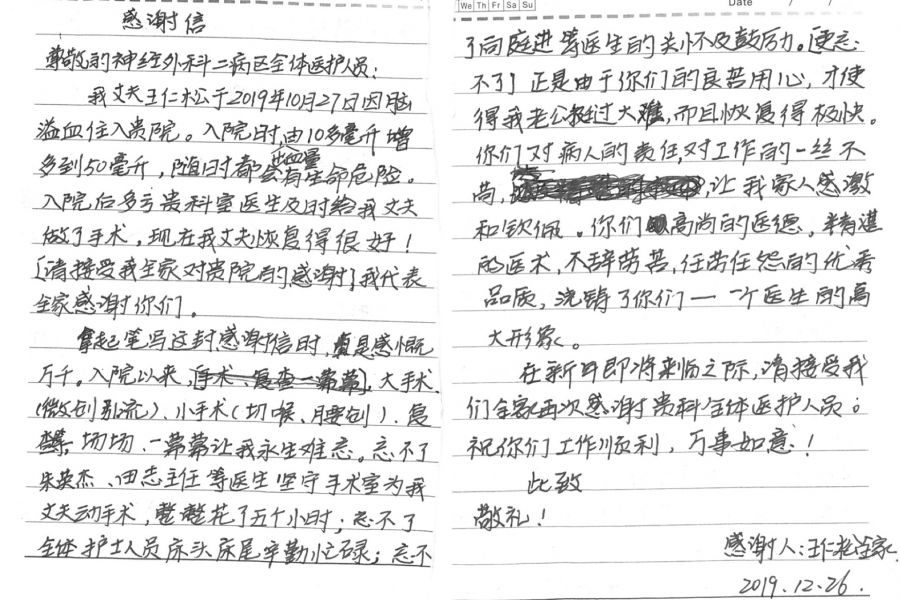 感谢信
尊敬的神经外科二病区全体医护人员:
我丈夫王仁松于2019年10月27日因脑
溢血住入贵院。入院时,由10多毫升增
多到50毫升,随时都会有生命危险。
出血量
入院后多亏贵科室医生及时给我丈夫
做了手术,现在我丈夫恢复得很好!
[请接受我全家对贵院的感谢]我代表
全家感谢你们。
拿起笔写这封感谢信时,真是感慨
万千。入院以来,[手术、复查一幕幕],大手术
(微创引流)、小手术(切喉、腰创)、复
查等,场场、一幕幕让我永生难忘。忘不了
朱英杰、田志主任等医生坚守手术室为我
丈夫动手术,整整花了五个小时;忘不了
全体护士人员床头床尾辛勤忙碌;忘不
We Th Fr Sa Su
Date / /
了向庭进等医生的关怀及鼓励。更忘
不了!正是由于你们的良苦用心,才使
得我老公挺过大难,而且恢复得极快。
你们对病人的责任,对工作的一丝不
苟,让我家人感激
和钦佩。你们高尚的医德,精湛
的医术,不辞劳苦,任劳任怨的优秀
品质,浇铸了你们一一个医生的高
大形象。
在新年即将来临之际,请接受我
们全家再次感谢贵科全体医护人员;
祝你们工作顺利,万事如意!
此致
敬礼!
感谢人:王仁松全家
2019.12.26.